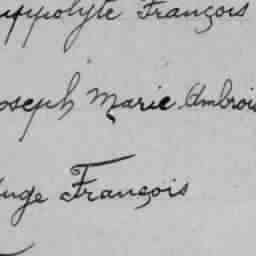 yppolyte François
oseph Marie Ambrois
Ange François